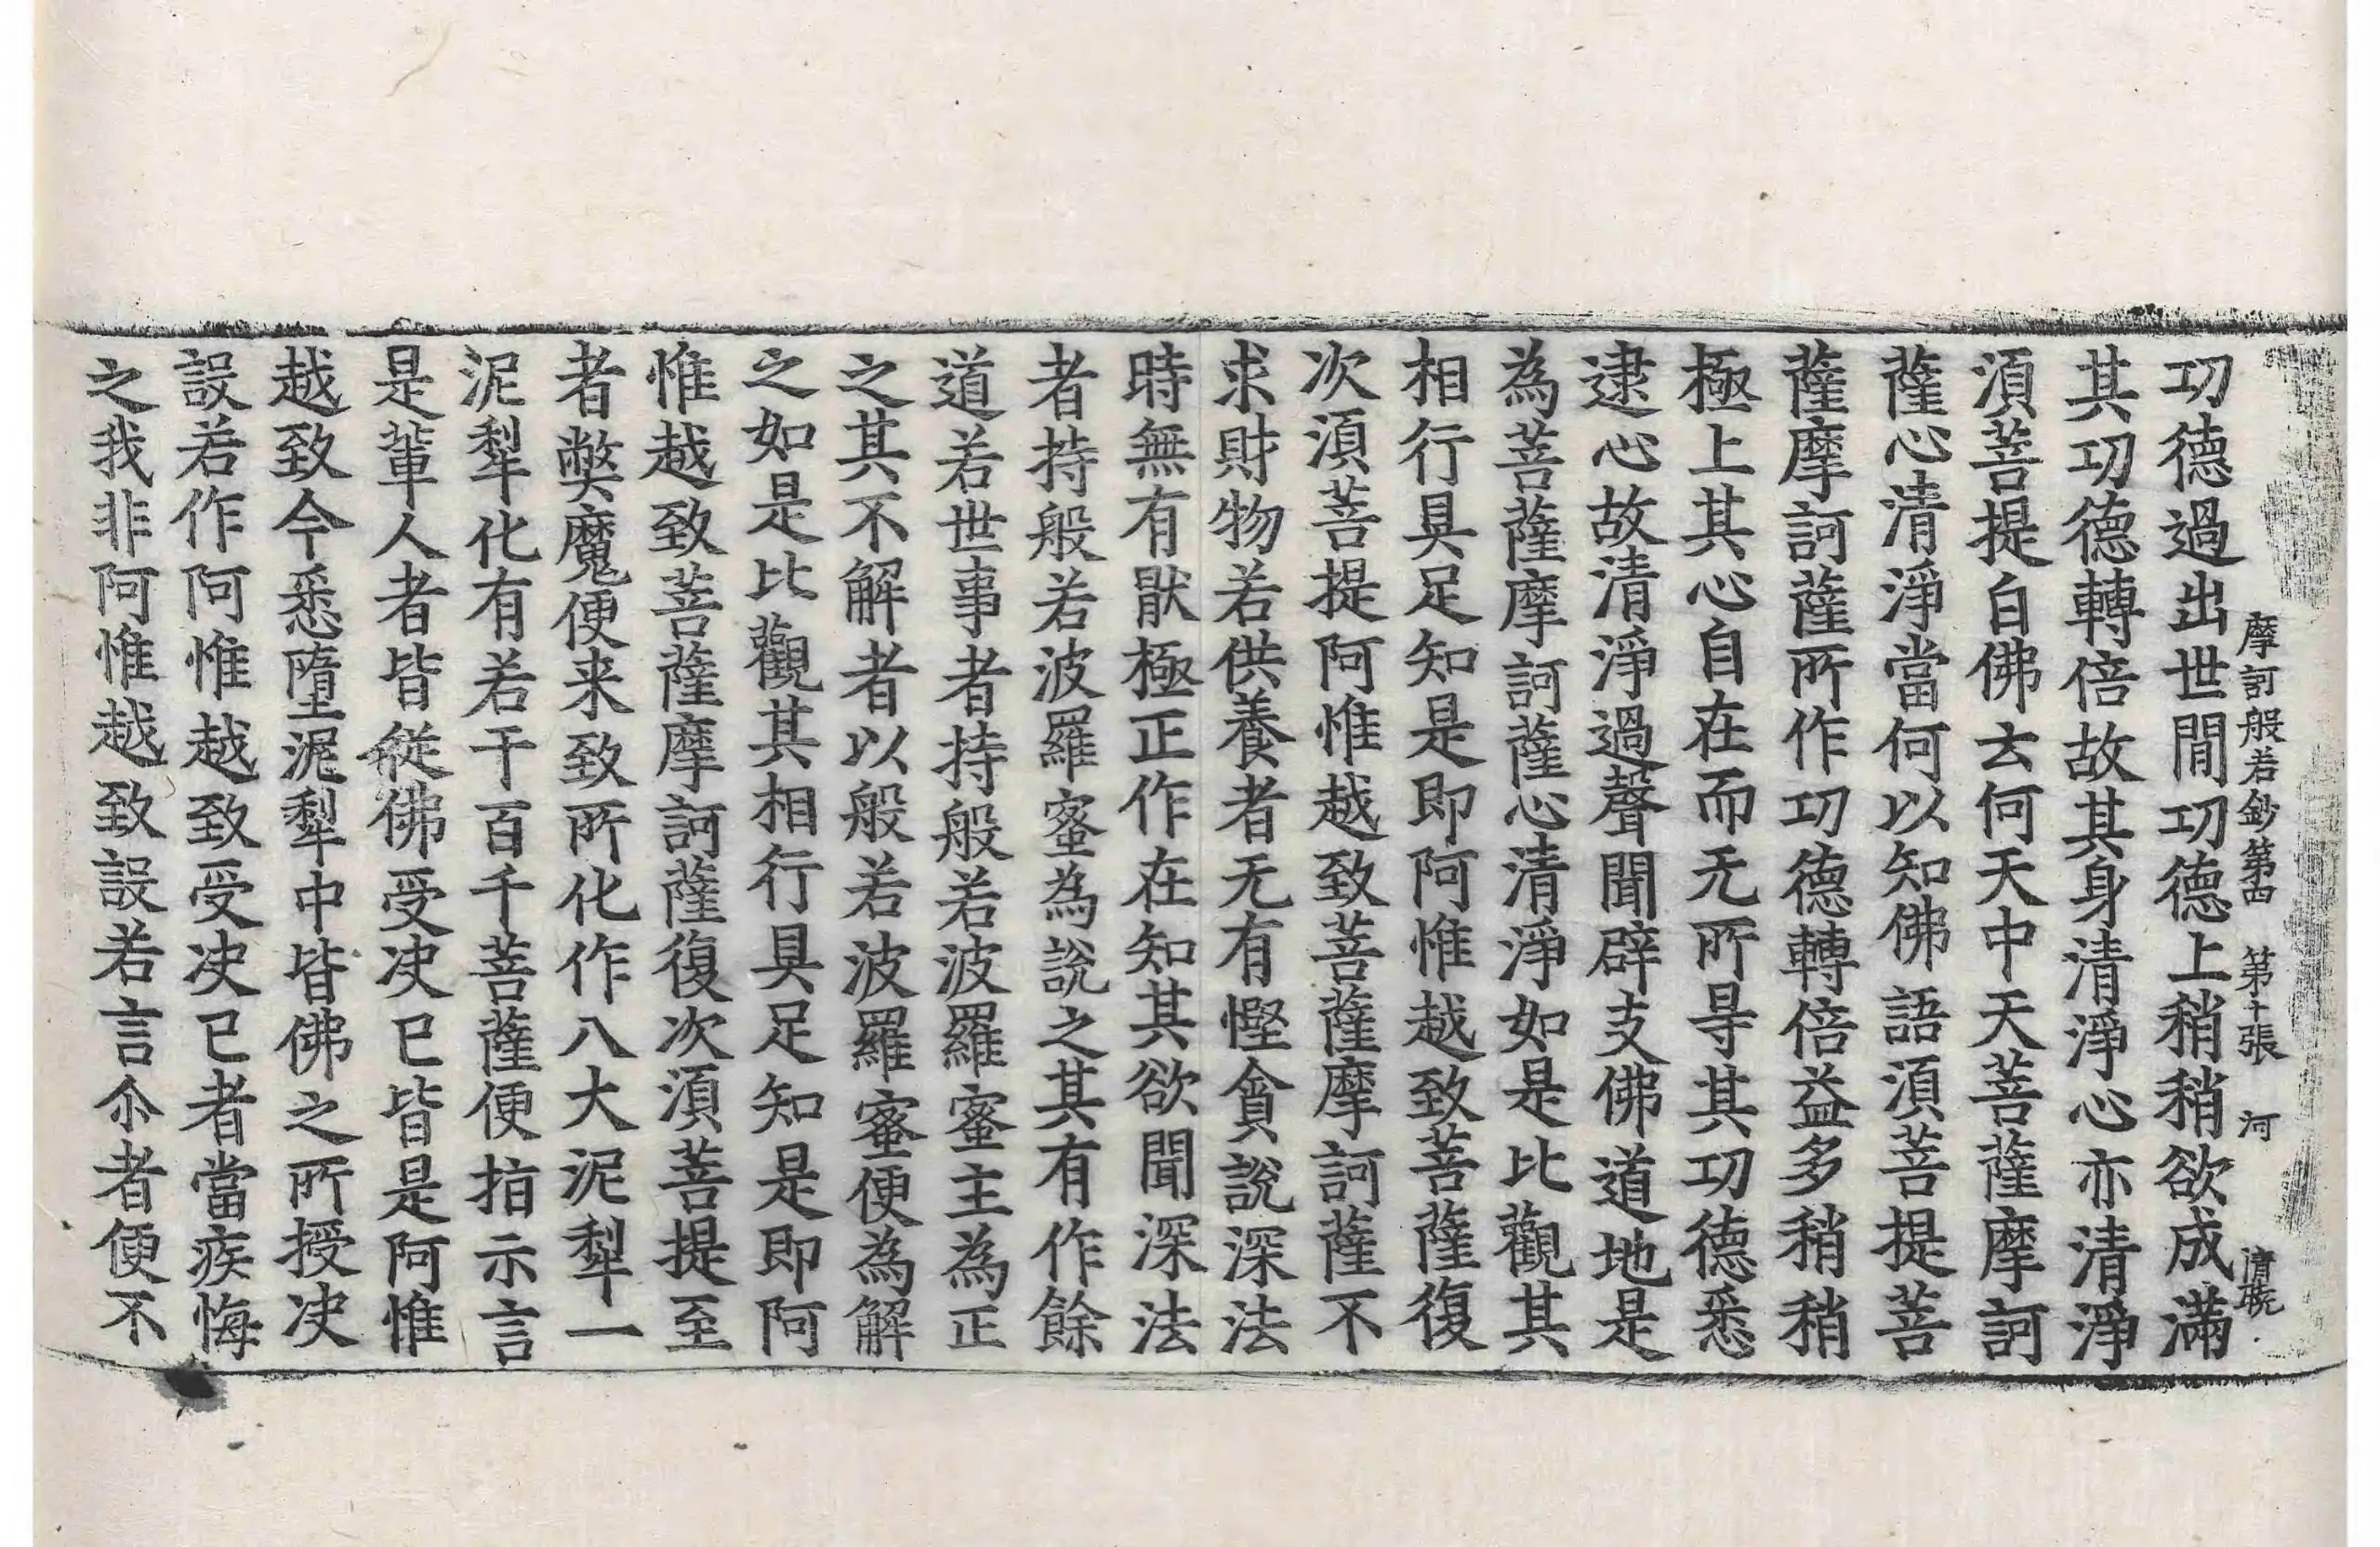 摩訶般若鈔第四 第十張 河
功德過出世間功德上稍稍欲成滿
其功德轉倍故其身清淨心亦清淨
湏菩提白佛云何天中天菩薩摩訶
薩心清淨當何以知佛語湏菩提菩
薩摩訶薩所作功德轉倍益多稍稍
極上其心自在而无所㝵其功德悉
逮心故清淨過聲聞辟支佛道地是
為菩薩摩訶薩心清淨如是比觀其
相行具足知是即阿惟越致菩薩復
次湏菩提阿惟越致菩薩摩訶薩不
求財物若供養者无有慳貪說深法
時無有猒極正作在知其欲聞深法
者持般若波羅蜜為說之其有作餘
道若世事者持般若波羅蜜主為正
之其不解者以般若波羅蜜便為解
之如是比觀其相行具足知是即阿
惟越致菩薩摩訶薩復次湏菩提至
者弊魔便来致所化作八大泥犁一
泥犁化有若干百千菩薩便指示言
是輩人者皆從佛受决已皆是阿惟
越致今悉墮泥犁中皆佛之所授决
設若作阿惟越致受决已者當疾悔
之我非阿惟越致設若言尒者便不